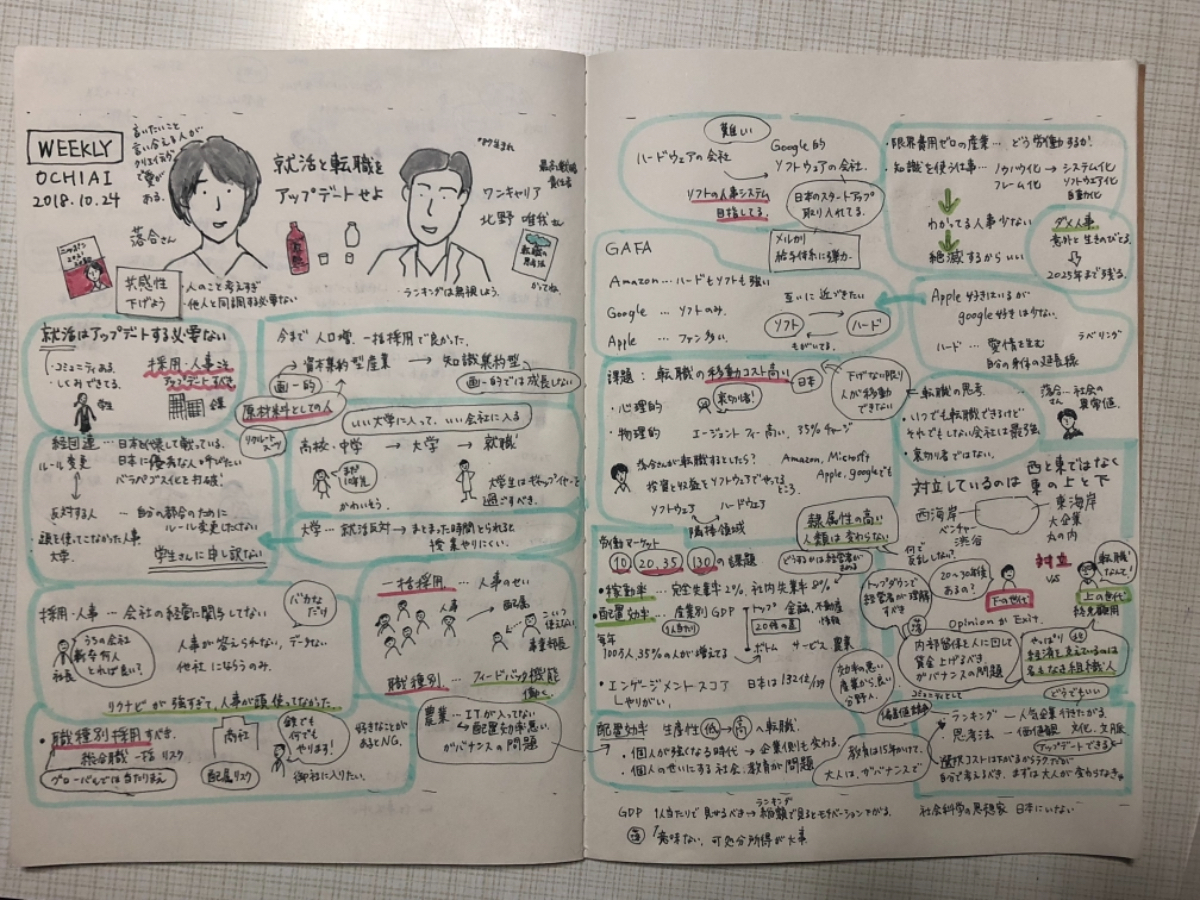 WEEKLY
OCHIAI
2018.10.24
言いたいこと
言い合える人が
クリエイティブ
で愛が
ある.
落合さん
就活と転職を
アップデートせよ
'87生まれ
最高戦略
責任者
ワンキャリア
北野 唯我さん
転職の
思考法
かいてね.
共感性
下げよう
・人のこと考えすぎ
・他人と同調する必要ない
・ランキングは無視しよう.
就活はアップデートする必要ない
・コミュニティある.
・しくみできてる.
採用・人事法
アップデートすべき
学生
企業
今まで 人口増. 一括採用で良かった.
資本集約型産業 → 知識集約型
画一的
画一的では成長しない
原材料としての人
リクルートスーツ
いい大学に入って、いい会社に入る
高校・中学 → 大学 → 就職
かわいそう.
大学生はギャップイヤーを
過ごすべき.
経団連 … 日本を壊して戦っている.
ルール変更 日本に優秀な人を呼びたい
ガラパゴス化を打破!
反対する人 … 自分の都合のために
ルール変更したくない
・頭を使ってこなかった人事
大学.
学生さんに申し訳ない
大学 … 就活反対 → まとまった時間とられると
授業やりにくい.
採用・人事 … 会社の経営に関与してない
バカな
だけ
うちの会社
新卒何人
とれば良い?
社長
人事が答えられない, データない
他社にならうのみ.
リクナビが強すぎて、人事が頭使ってなかった.
一括採用 … 人事のせい
人事
配属
こいつ
使えない
事業部長
職種別 … フィードバック機能
働く.
・職種別採用すべき.
総合職一括 リスク
グローバルでは当たりまえ
商社
配属リスク
誰でも
何でも
やります!
御社に入りたい.
好きなことが
あるとNG.
農業 … ITが入ってない
配置効率悪い.
ガバナンスの問題
難しい
ハードウェアの会社
Google的
ソフトウェアの会社.
ソフトの人事システム
目指してる.
日本のスタートアップ
取り入れてる.
メルカリ
給与体系に弾力.
GAFA
Amazon … ハードもソフトも強い
Google … ソフトのみ.
Apple … ファン多い.
互いに近づきたい
ソフト
ハード
もがいてる.
・限界費用ゼロの産業 … どう労働するか!
・知識を使う仕事 … ノウハウ化 → システム化
フレーム化 ソフトウェア化
自動化
わかってる人事少ない
絶滅するからいい
ダメ人事
意外と生きのびてる.
2025年まで残る.
Apple好きはいるが
google好きは少ない.
ラベリング
ハード … 愛情を生む
自分の身体の延長線
課題 : 転職の移動コスト高い
日本
・心理的
裏切り者!
・物理的 エージェントフィー高い, 35%チャージ
下げない限り
人が移動
できない
・転職の思考.
・いつでも転職できるけど
それでもしない会社は最強.
・裏切り者ではない.
落合さん … 社会の
異常値.
落合さんが転職するとしたら?
Amazon, Microsoft
Apple, googleでも
投資と収益をソフトウェアでやってる
ところ.
ソフトウェア ハードウェア
隣接領域
西と東ではなく
対立しているのは 東の上と下
西海岸
ベンチャー
渋谷
東海岸
大企業
丸の内
労働マーケット
10 20.35 130の課題
・稼働率 … 完全失業率2%, 社内失業率8%
・配置効率 … 産業別GDP
1人当たり
トップ 金融, 不動産
情報
20倍の差
ボトム サービス 農業
毎年
100万人, 35%の人が増えてる
・エンゲージメントスコア 日本は132位/139
しやりがい.
隷属性の高い
人類は変わらない
どうするかは経営者が
きめる
何で
反乱しない?
トップダウンで
経営者が理解
すべき
20〜30年後
あるの?
下の世代
対立
vs
転職
なんて!
上の世代
終身雇用
Opinion か Exit.
内部留保を人に回して
賃金上げるべき
ガバナンスの問題
コミュニティとして
効率の悪い
産業から良い
分野へ.
どうでもいい
配置効率 生産性 低→高へ転職.
・個人が強くなる時代 → 企業側も変わる.
・個人のせいにする社会, 教育が問題
教育は15年かけて.
大人は, ガバナンスで
ランキング … 人気企業行きたがる.
思考法 … 価値観 文化, 文脈
アップデートできる
選択コストは下がるからラクだが
自分で考えるべき. まずは大人が変わらなきゃ
GDP 1人当たりで見せるべき → 総額で見るとモチベーション下がる.
ランキング
意味ない, 可処分所得が大事
社会科学の思想家 日本にいない